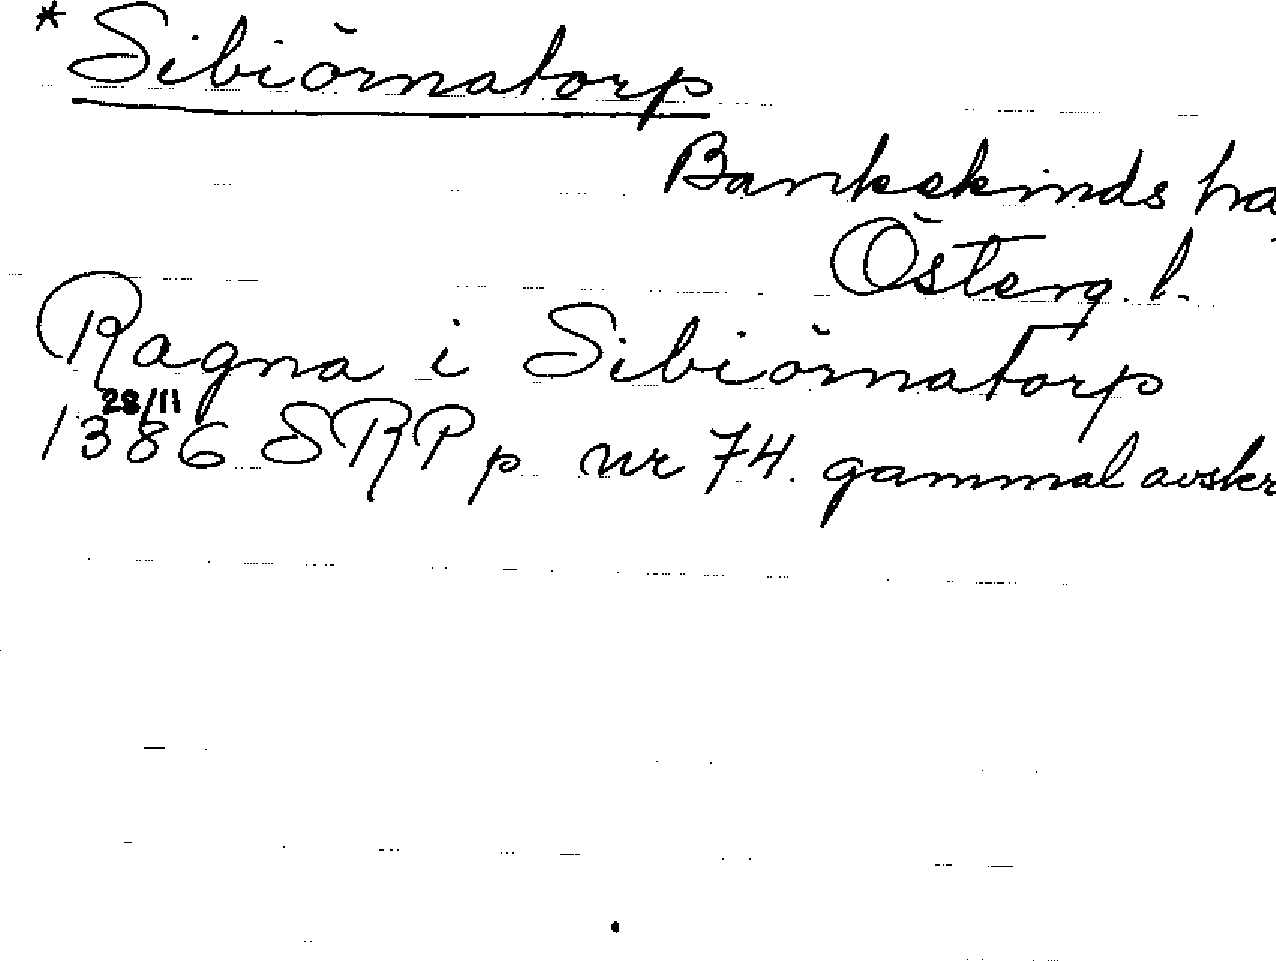 * Sibiörnatorp
Bankekinds hä
Österg. l.
Ragna i Sibiörnatorp
28/11
1386 SRP p nr 74. gammal avskr